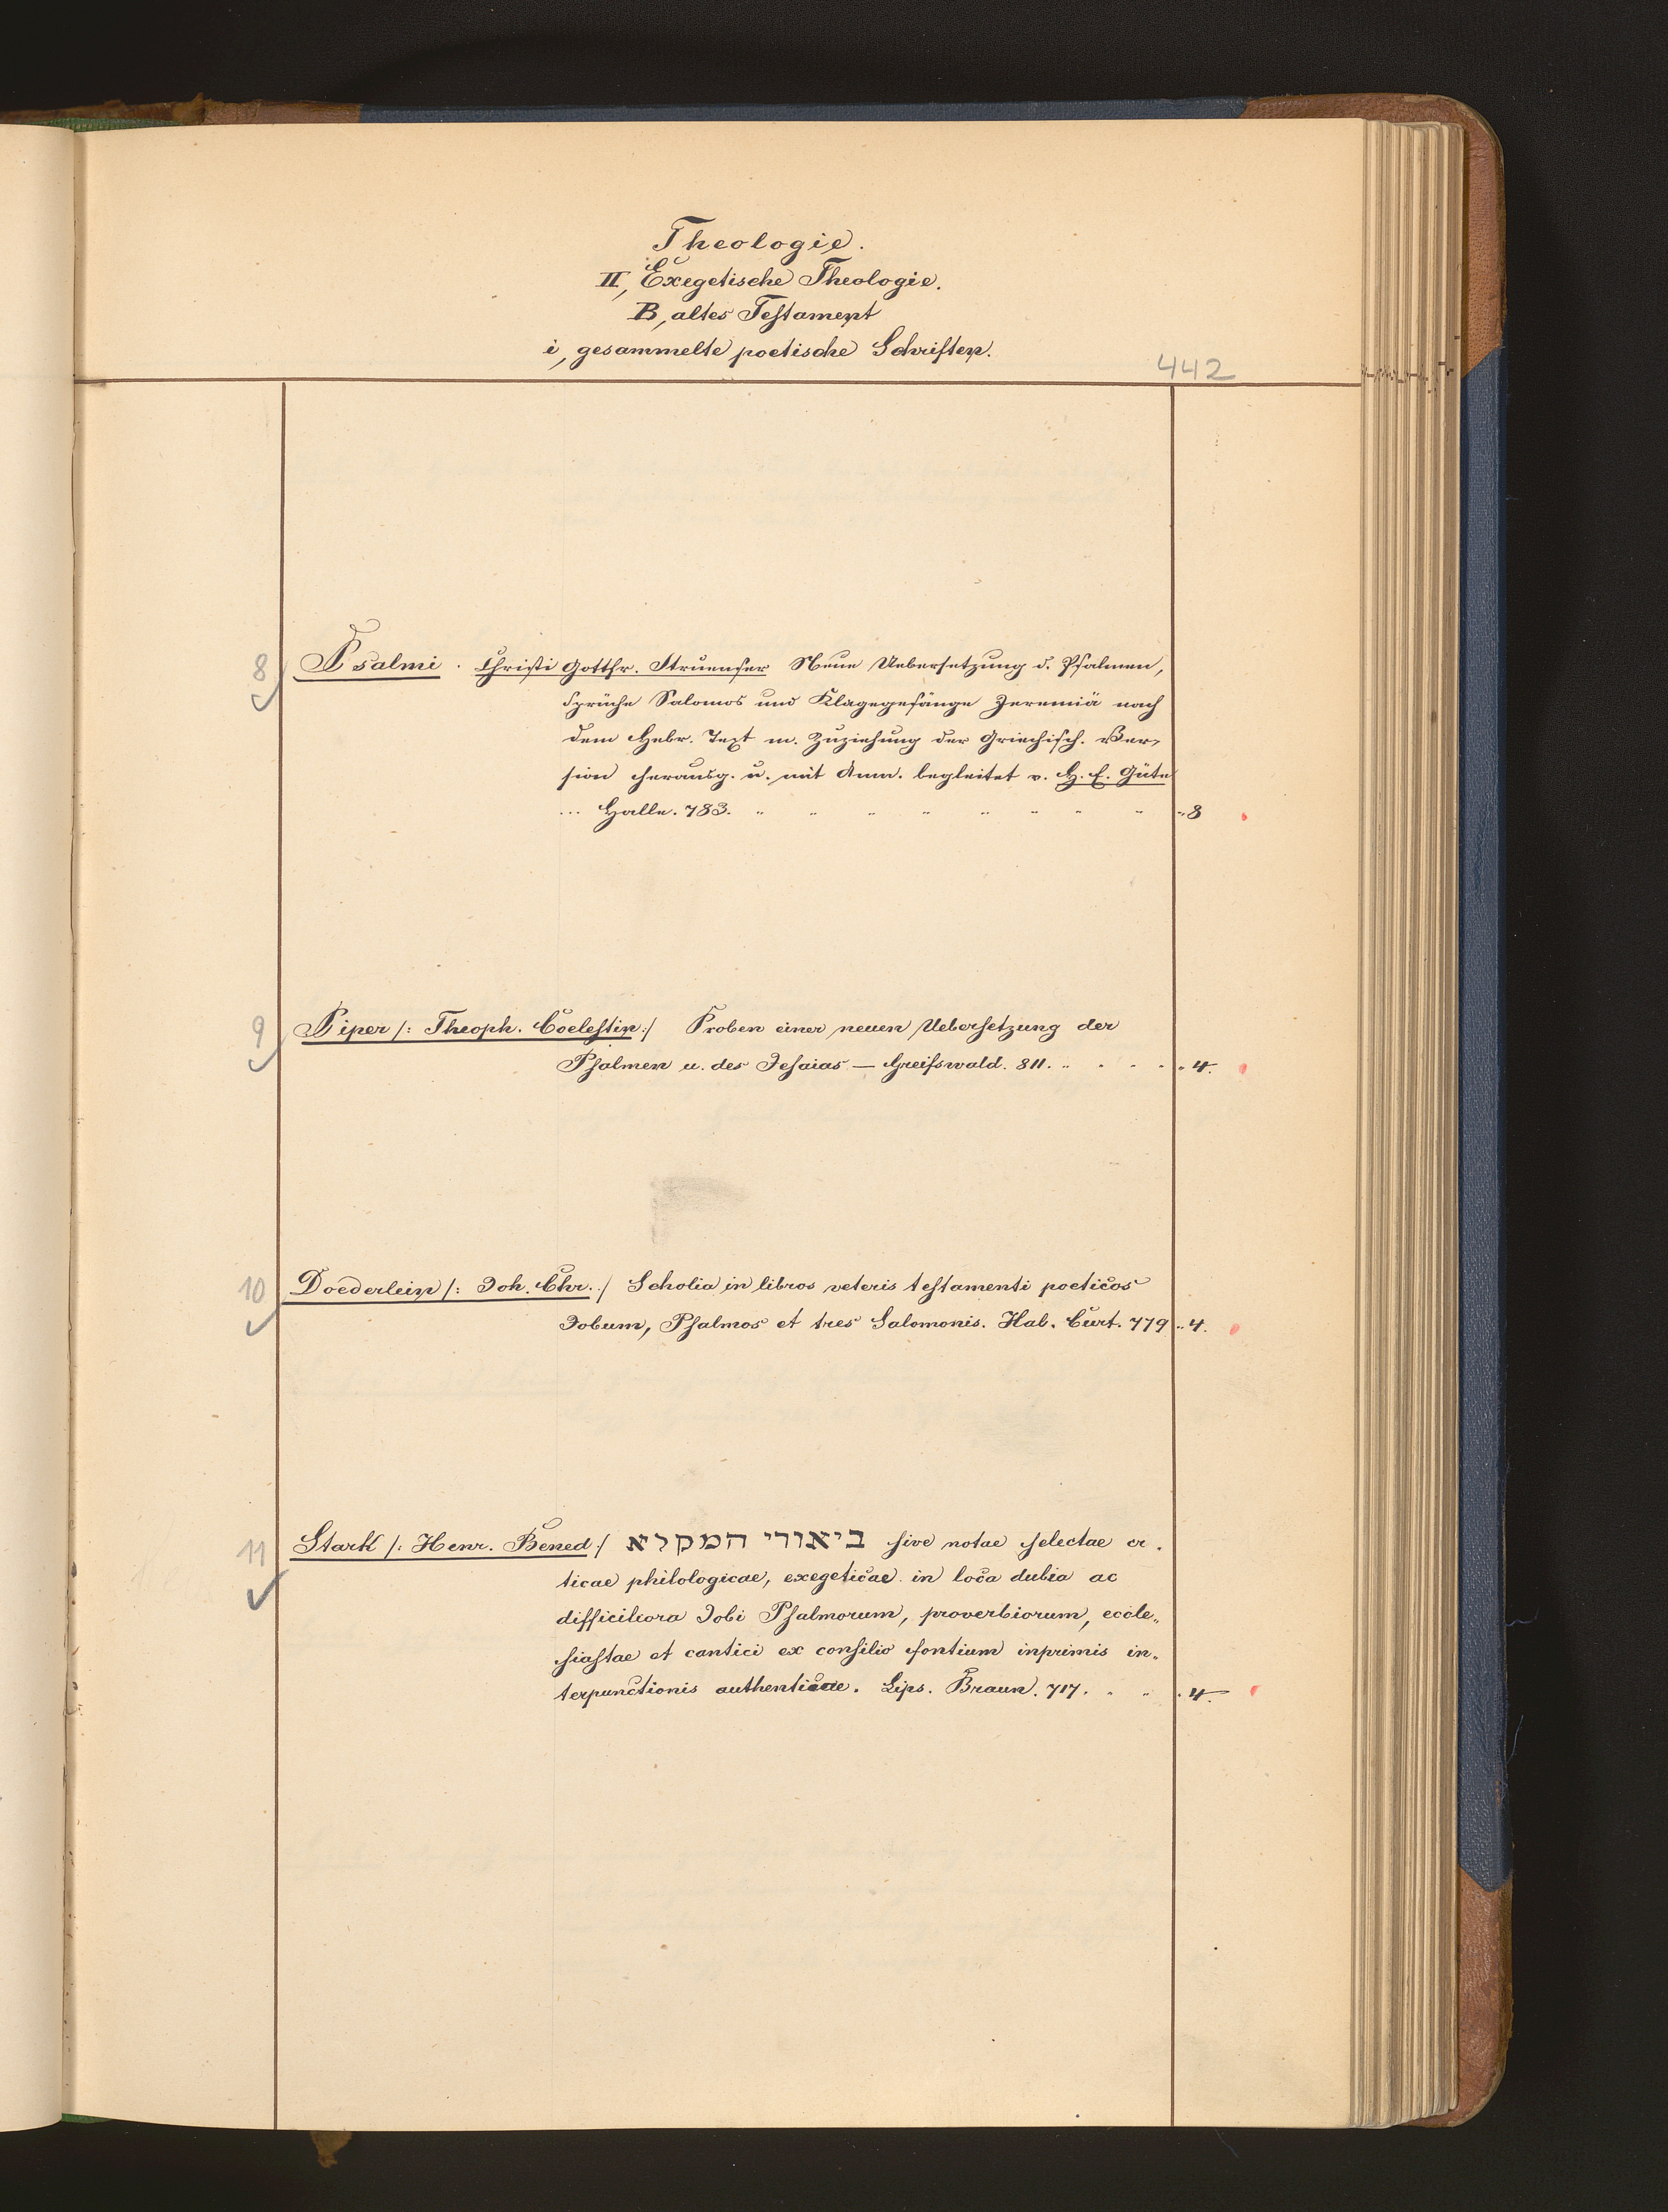 Theologie.
II, Exegetische Theologie.
B, altes Testament
i, gesammelte poetische Schriften.
442
8 Psalmi. Christi Gottfr. Struensee Neue Uebersetzung d. Psalmen,
Sprüche Salomos und Klagegesänge Jeremiä nach
dem Hebr. Text m. Zuziehung der Griechisch. Ver,
sion herausg. u. mit Anm. begleitet v. H. E. Güte
... Halle. 783. " " " " " " " " " 8
9 Piper /: Theoph. Coelestin :/ Proben einer neuen Uebersetzung der
Psalmen u. des Jesaias — Greifswald. 811. " . . . . 4.
10 Doederlein /: Joh. Chr. :/ Scholia in libros veteris testamenti poeticos
Jobum, Psalmos et tres Salomonis. Hal. Curt. 779 " 4.
11 Stark /: Henr. Bened :/ ביאורי המקלא sive notae selectae cr.
ticae philologicae, exegeticae in loca dubia ac
difficiliora Jobi Psalmorum, proverbiorum, eccle„
siastae et cantici ex consilio fontium inprimis in„
terpunctionis authenticae. Lips. Braun. 717. " " . 4.